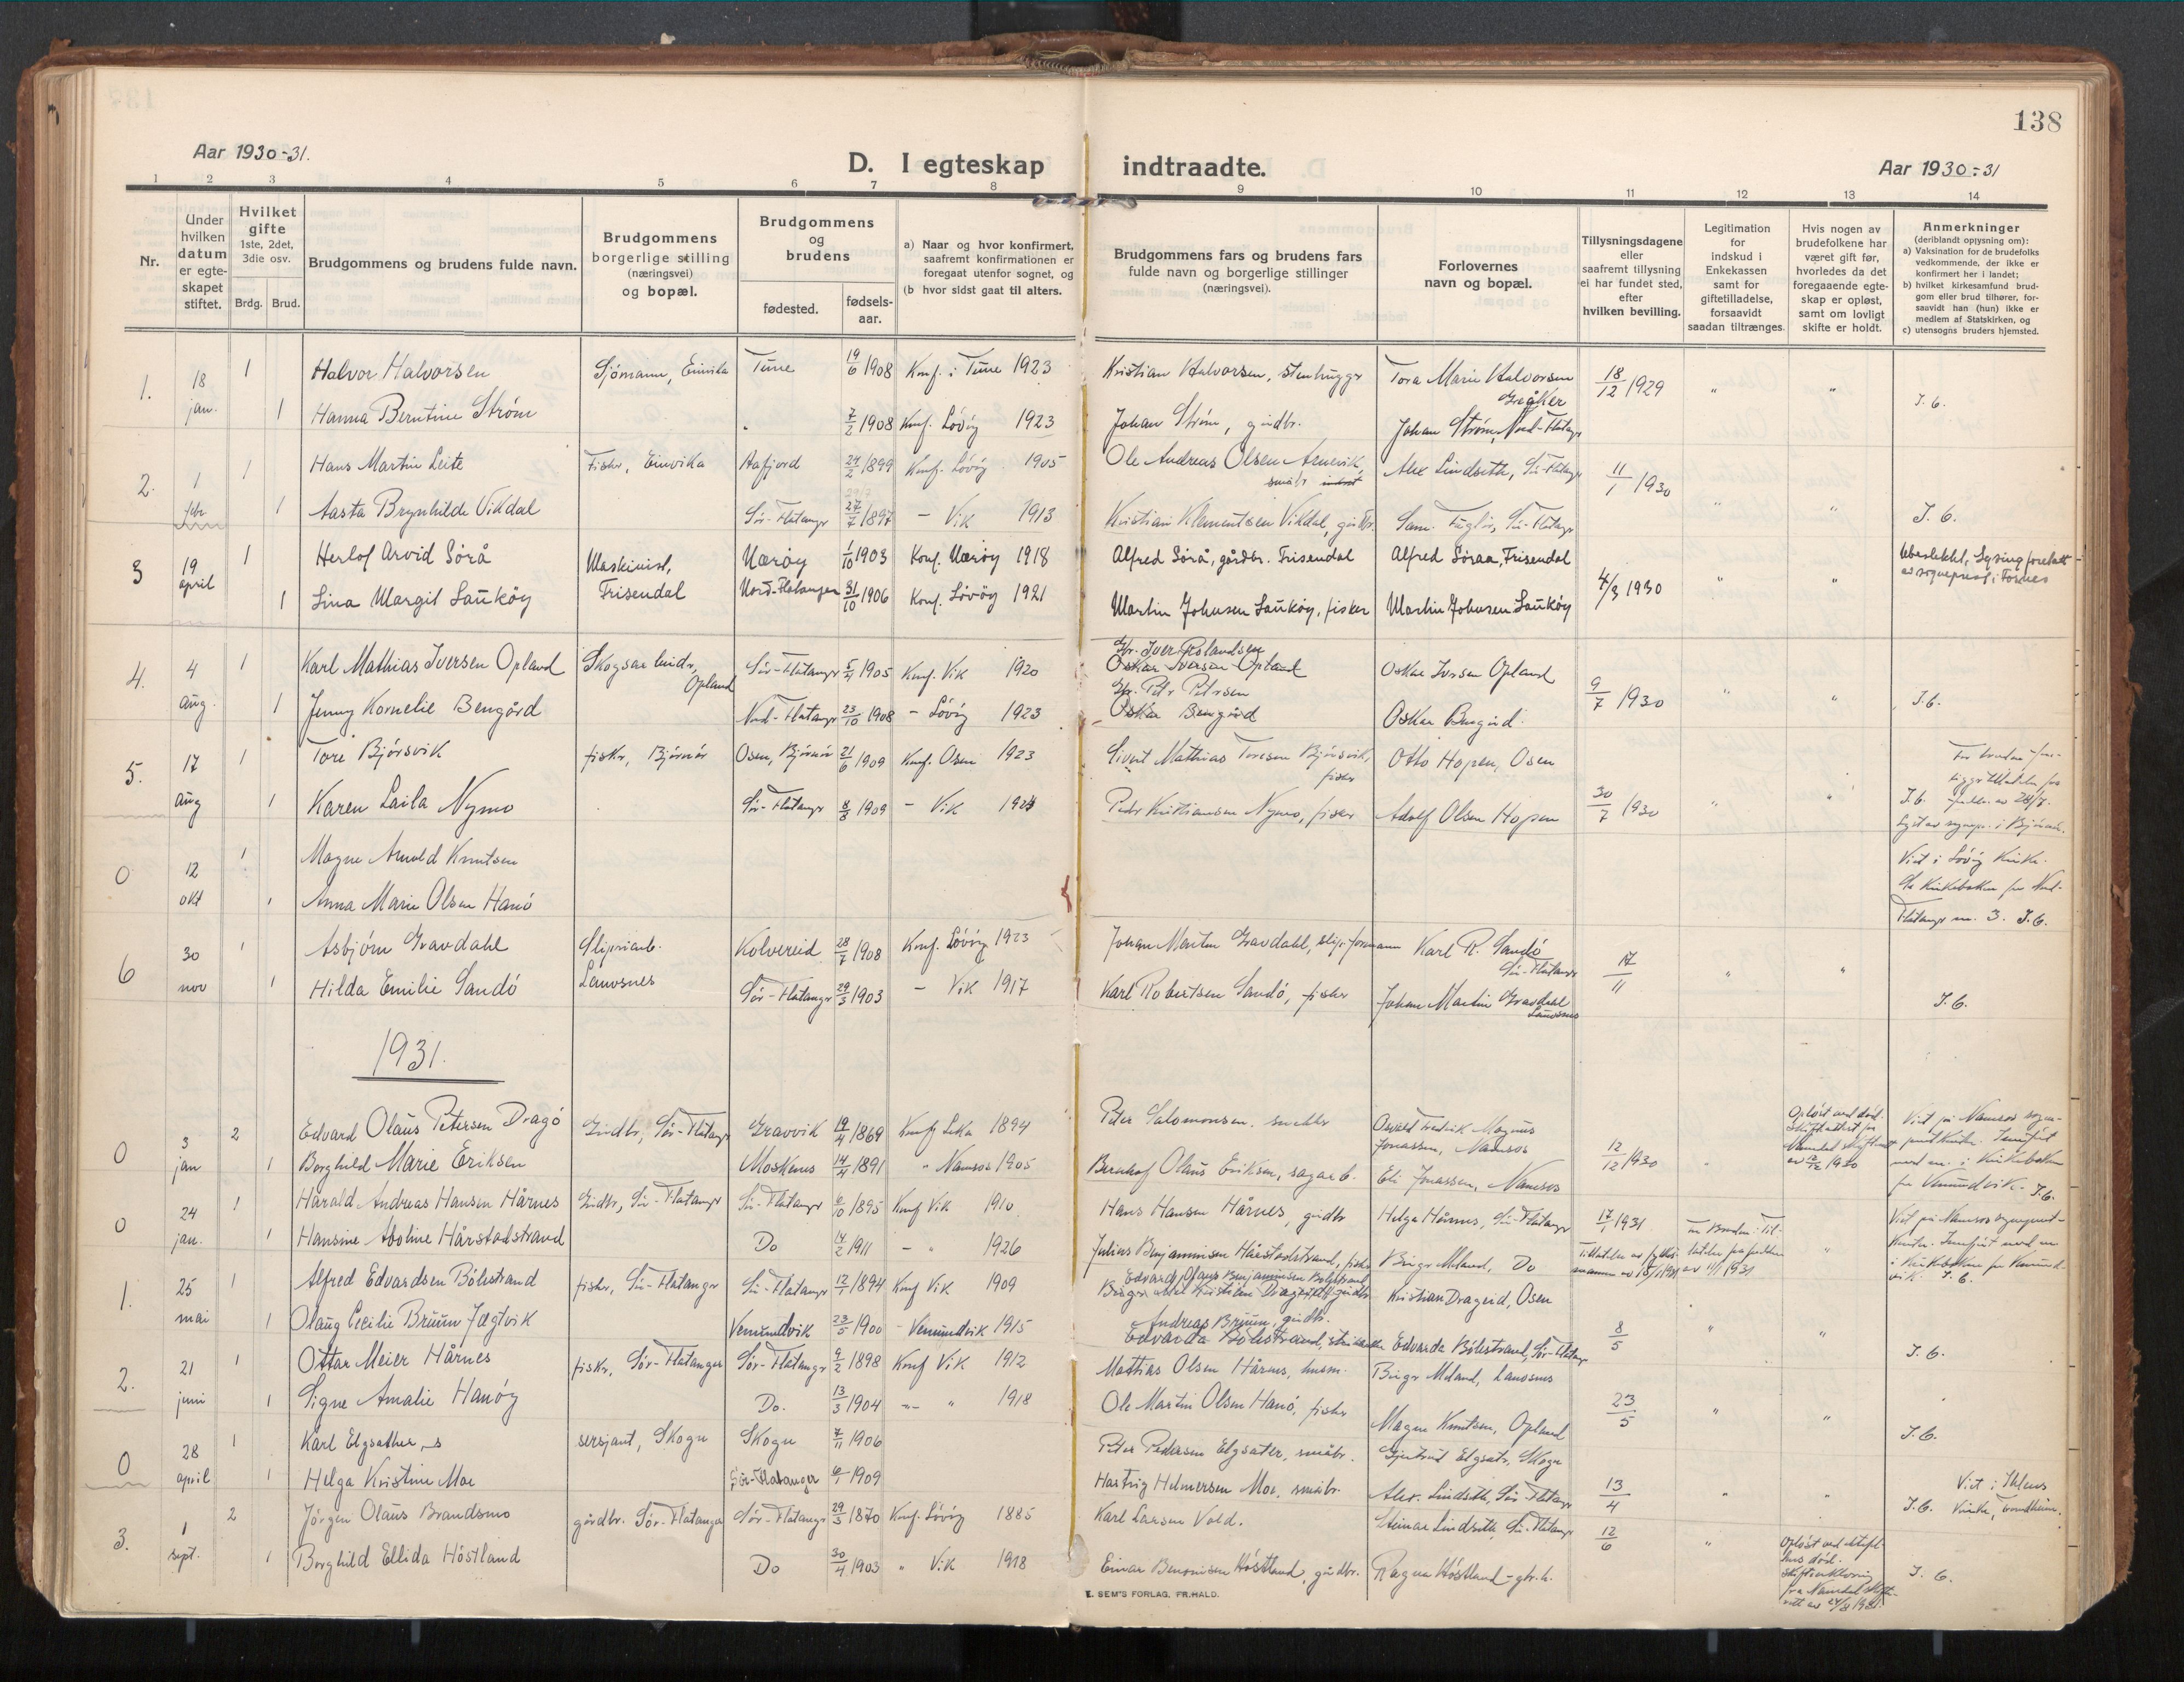 138
Aar 1930-31.
D. I egteskap indtraadte.
Aar 1930-31
1 2 3 4 5 6 7 8 9 10 11 12 13 14
Nr.
Under hvilken datum er egteskapet stiftet.
Hvilket gifte 1ste, 2det, 3die osv.
Brdg. Brud.
Brudgommens og brudens fulde navn.
Brudgommens borgerlige stilling (næringsvei) og bopæl.
Brudgommens og brudens
fødested. fødselsaar.
a) Naar og hvor konfirmert, saafremt konfirmationen er foregaat utenfor sognet, og
(b hvor sidst gaat til alters.
Brudgommens fars og brudens fars fulde navn og borgerlige stillinger (næringsvei).
Forlovernes navn og bopæl.
Tillysningsdagene eller saafremt tillysning ei har fundet sted, efter hvilken bevilling.
Legitimation for indskud i Enkekassen samt for giftetilladelse, forsaavidt saadan tiltrænges.
Hvis nogen av brudefolkene har været gift før, hvorledes da det foregaaende egteskap er opløst, samt om lovligt skifte er holdt.
Anmerkninger (deriblandt opjysning om):
a) Vaksination for de brudefolks vedkommende, der ikke er konfirmert her i landet;
b) hvilket kirkesamfund brudgom eller brud tilhører, forsaavidt han (hun) ikke er medlem af Statskirken, og
c) utensogns bruders hjemsted.
1. 18 jan. 1 Halvor Halvorsen Sjömann, Einvika Tune 19/6 1908 Konf. i Tune 1923 Kristian Halvorsen, stenhugger Tora Marie Halvorsen Greåker 18/12 1929 " " I. G.
1 Hanna Berntine Ström 7/2 1908 Konf. Lövöy 1923 Johan Ström, gårdbr. Johan Ström, Nord-Flatangr
2. 1 febr. 1 Hans Martin Leite Fisker, Einvika Aafjord 24/2 1899 Konf. Lövöy 1905 Ole Andreas Olsen Arnevik, småbr. Alex Lindseth, Sör-Flatangr 11/1 1930
1 Aasta Brynhilde Vikdal Sör-Flatangr 27/7 1897 - Vik 1913 Kristian Klementsen Vikdal, gårdbr. Sör-Flatangr " " I. G.
3 19 april 1 Herlof Arvid Sörå Maskinist, Frisendal Nærøy 1/10 1903 Konf. Nærøy 1918 Alfred Sörå, gårdbr. Frisendal Alfred Söraa, Frisendal 4/3 1930 " " Ubeslektet, Lysing foretatt av sogneprest i Fosnes
1 Lina Margit Laukøy Nord-Flatanger 31/10 1906 Konf. Lövöy 1921 Martin Johnsen Laukøy, fisker Martin Johnsen Laukøy
4. 4 aug. 1 Karl Mathias Iversen Opland Skogsarbeider, Opland Sör-Flatangr 5/4 1905 Konf. Vik 1920 Gbr. Iver Rolandsen Oskar Iversen Opland Oskar Iversen Opland 9/7 1930 " " I. G.
1 Jenny Kornelie Bengård Nord-Flatangr 23/10 1908 - Lövöy 1923 Gbr. Petr Petrsen Oskar Bengård Oskar Bengård.
5. 17 aug 1 Tore Bjørsvik fisker, Bjørnør Osen, Bjørnør 21/6 1909 Konf. Osen 1923 Sivert Mathias Toresen Bjørsvik, fisker Otto Hopen, Osen 30/7 1930
1 Karen Laila Nymo Sör-Flatangr 8/8 1909 - Vik 1924 Peder Kristiansen Nymo, fisker Adolf Olsen Hopen " " I. G.
0 12 okt 1 Magne Arnold Knutsen Viet i Lövöy Kirke.
1 Anna Marie Olsen Hanö Se Kirkeboken for Nord-Flatangr nr. 3. I. G.
6 30 nov 1 Asbjörn Gravdahl Sliperiarb. Lauvsnes Kolvereid 28/7 1908 Konf. Lövöy 1923 Johan Martin Gravdahl, slip.formann Karl R. Sandö Sör-Flatangr 17/11 " "
1 Hilda Emilie Sandö Sör-Flatangr 29/3 1903 - Vik 1917 Karl Robertsen Sandö, fisker Johan Martin Gravdahl Lauvsnes I. G.
1931.
0 3 jan 2 Edvard Olaus Petersen Dragö Gårdbr, Sör-Flatangr Gravvik 19/4 1869 Konf Leka 1894 Peter Salomonsen. Osvald Fredrik Magnus Jonassen, Namsos 12/12 1930 Opløst ved død. Skifteattest fra Namdal skifterett av 12/12 1930 Viet på Namsos sogneprestkontor. Innført med nr. i Kirkeboken for Vemundvik. I. G.
1 Borghild Marie Eriksen Moskenes 14/4 1891 " Namsos 1905 Bernhof Olaus Eriksen, sagarb. Eli Jonassen, Namsos
0 24 jan. 1 Harald Andreas Hansen Hårnes Gårdbr, Sör-Flatangr Sör-Flatangr 6/10 1895 Konf Vik 1910 Hans Hansen Hårnes, gårdbr Helge Hårnes, Sör-Flatangr 17/1 1931
1 Hansine Aboline Hårstadstrand Do 14/2 1911 - " 1926 Julius Benjaminsen Hårstadstrand, fisker Birger Meland, Do "
1. 25 mai 1 Alfred Edvardsen Bölestrand fisker, Sör-Flatanger Sör-Flatangr 12/1 1894 Konf Vik 1909 Edvard Olaus Benjaminsen Bölestrand Kristian Drageid, Osen 8/5 " " I. G.
1 Olaug Cecilie Bruun Jægtvik Vemundvik 23/5 1900 - Vemundvik 1915 Andreas Bruun, gårdbr. Edvarda Bölestrand, Edvarda Bölestrand, Sör-Flatangr
2. 21 juni 1 Ottar Meier Hårnes fisker, Sør-Flatanger Sør-Flatangr 9/2 1898 Konf Vik 1912 Mathias Olsen Hårnes, husm. Birger Meland, Lauvsnes 23/5 " "
1 Signe Amalie Hanöy Do. 13/3 1904 -"- " 1918 Ole Martin Olsen Hanö, fisker Magne Knutsen, Opland I. G.
0 28 april 1 Karl Elgsæther sersjant, Skogn Skogn 7/11 1906 Peter Pedersen Elgsæter, småbr. Gjertrud Elgsæter, Skogn
1 Helga Kristine Moe Sör-Flatanger 6/1 1909 Hartvig Helmersen Moe, småbr. Alex. Lindseth, Sör-Flatangr 13/4 " " I. G. Viet i Ihlens Kirke, Trondheim.
3. 1 sept. 2 Jörgen Olaus Brandsmo gårdbr. Sør-Flatanger Sør-Flatangr 29/3 1870 Konf. Lövöy 1885 Karl Larsen Vold. Steinar Lindseth, Sör-Flatangr 12/6 "
1 Borghild Ellida Höstland Do 30/4 1903 " Vik 1918 Einar Benonisen Höstland, gårdbr. Ragna Höstland - gbr.h. I. G.
E. SEM'S FORLAG, FR.HALD.